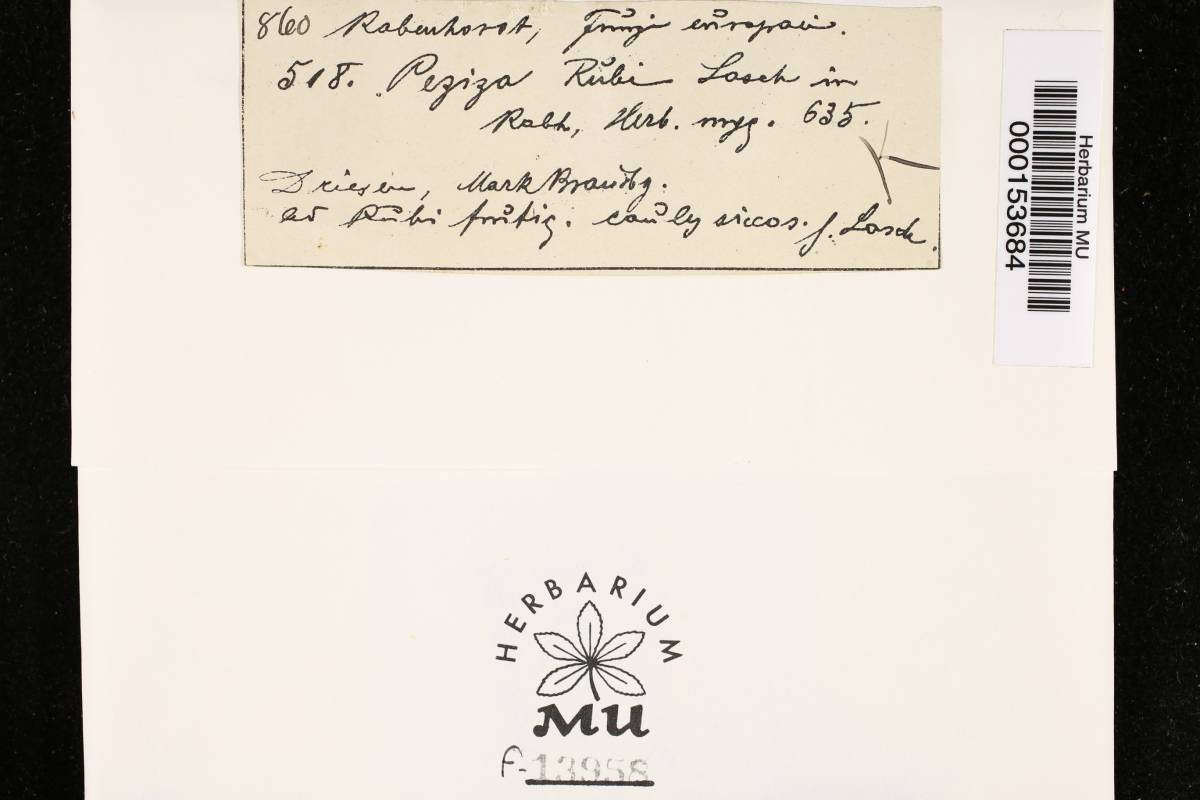 860 Rabenhorst, Fungi europaei.
518. Peziza Rubi Lasch in
Rabh, Herb. myc. 635.
Driesen, Mark Brandbg.
ad Rubi frutic. caules siccos. f. Lasch.
Herbarium MU
000153684
HERBARIUM
MU
F-13958